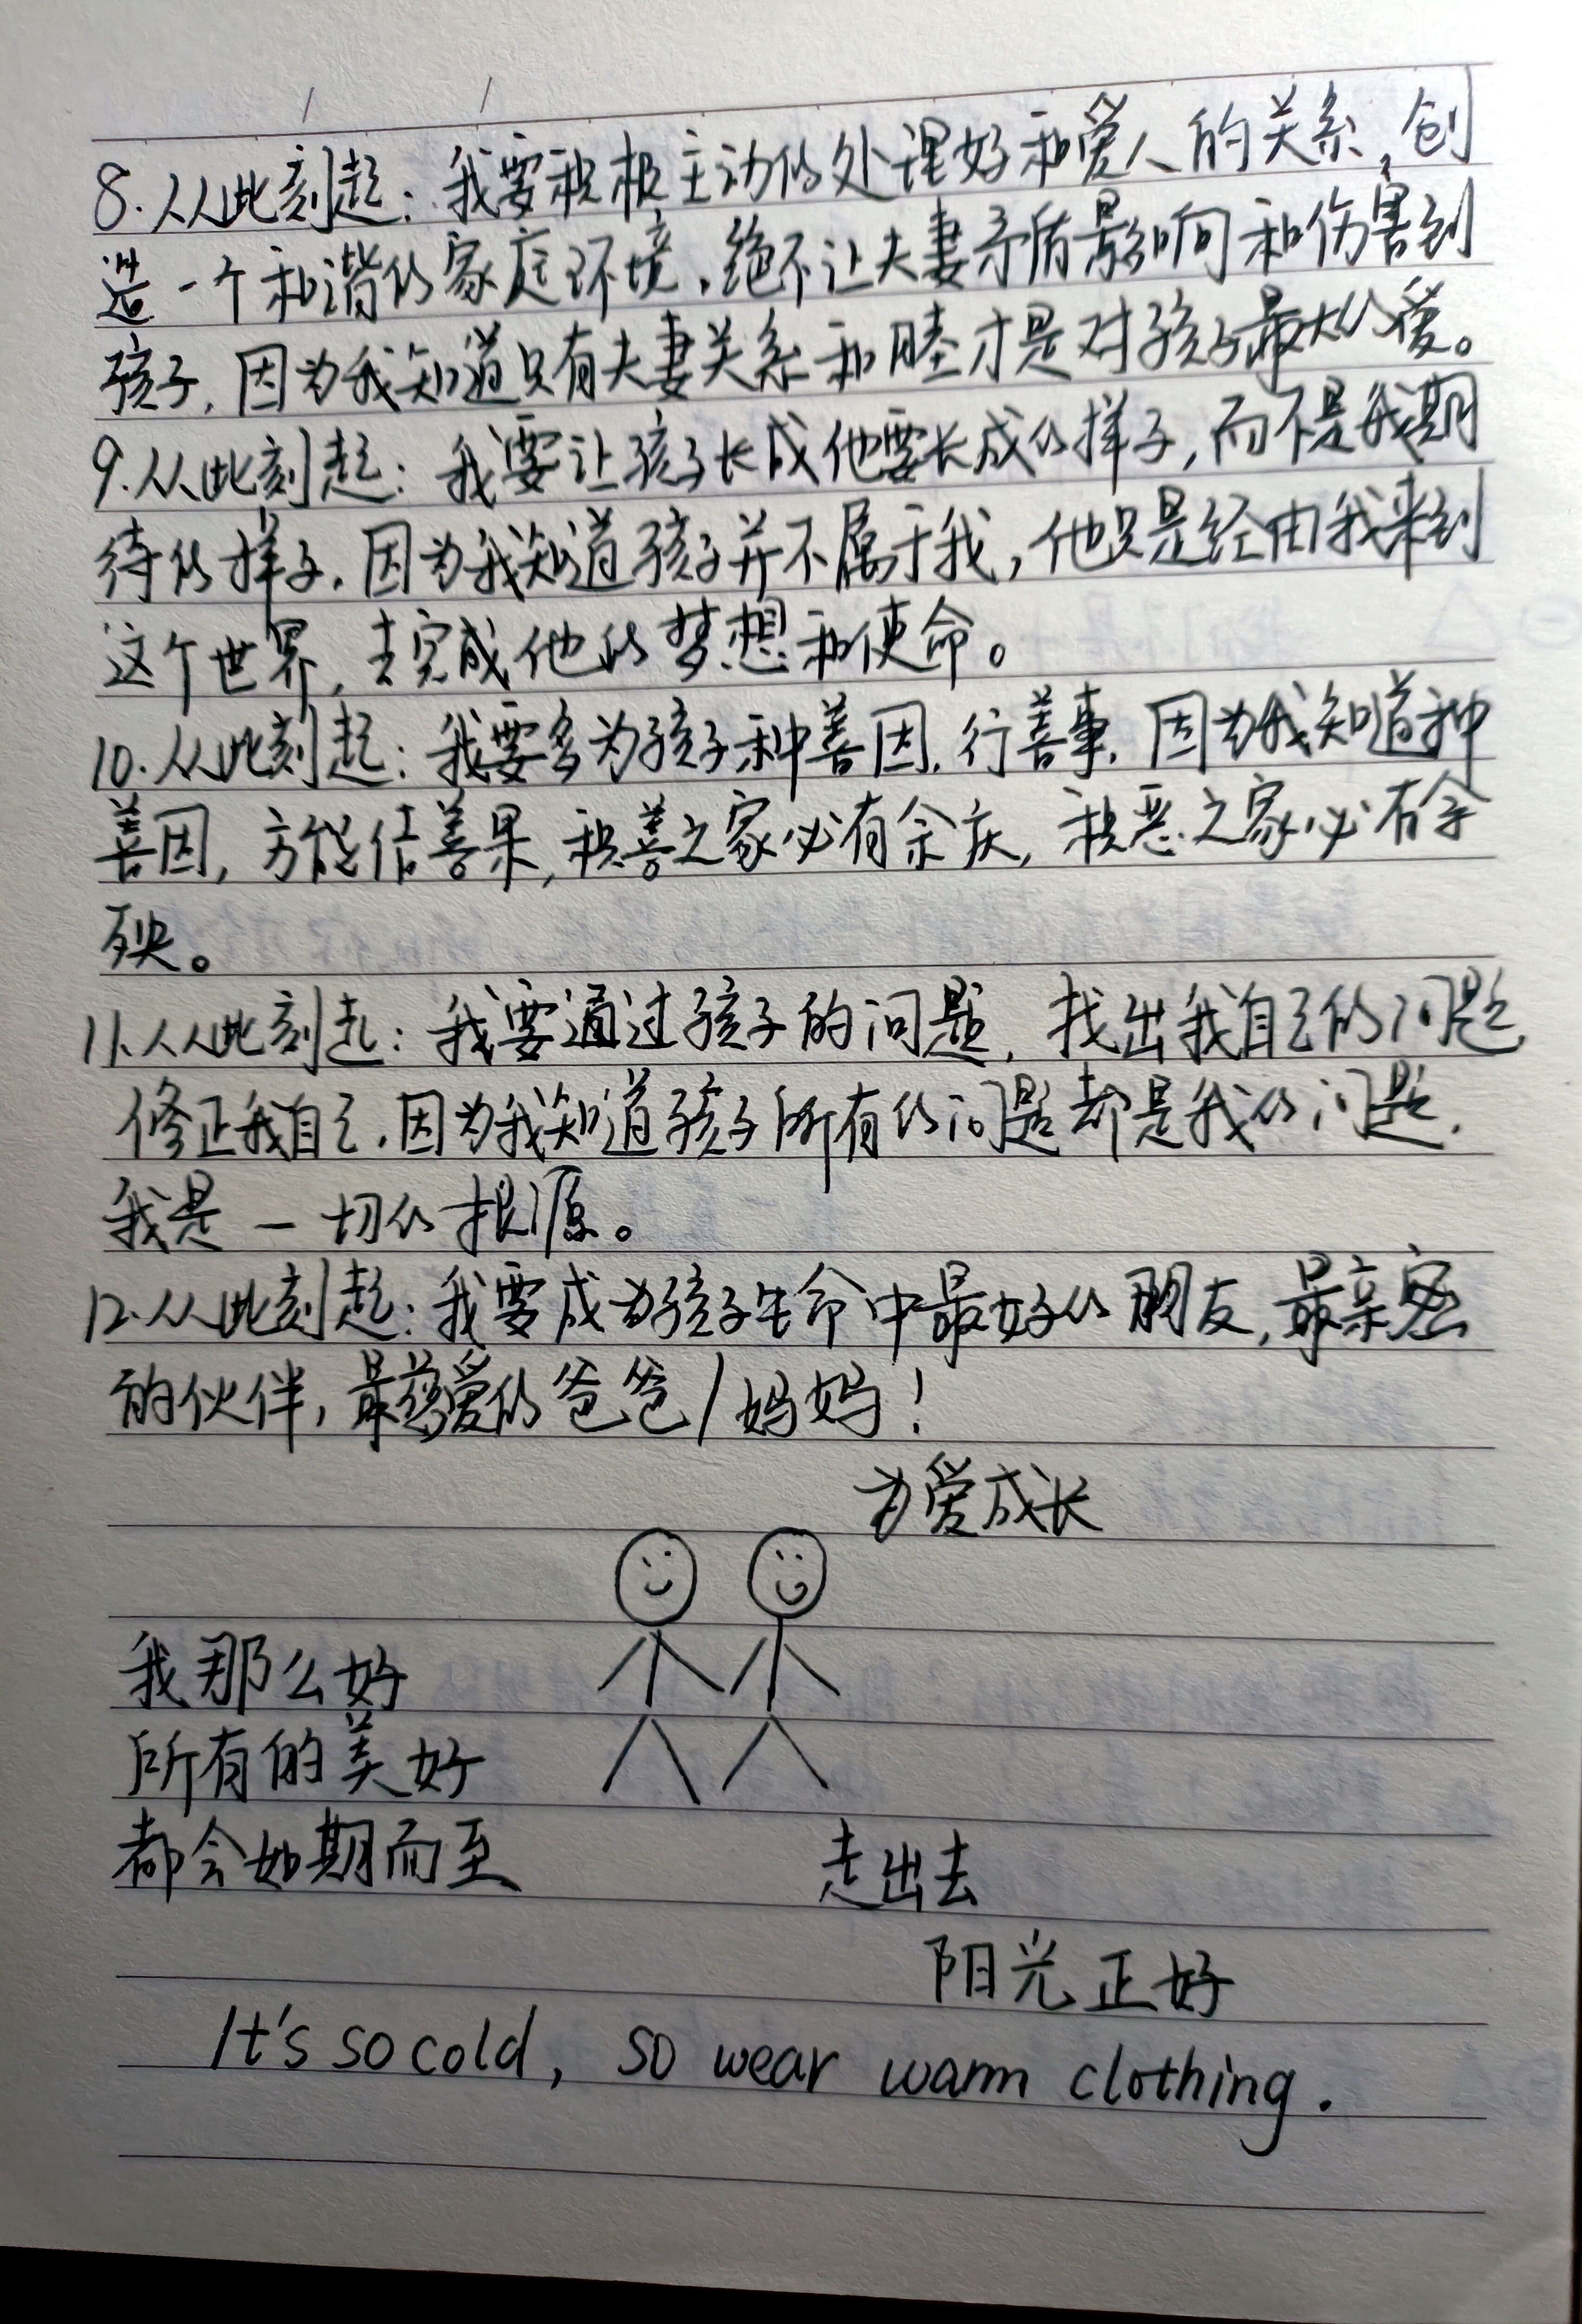 8.从此刻起：我要积极主动的处理好和爱人的关系，创
造一个和谐的家庭环境，绝不让夫妻矛盾影响和伤害到
孩子，因为我知道只有夫妻关系和睦才是对孩子最大的爱。
9.从此刻起：我要让孩子长成他要长成的样子，而不是我期
待的样子，因为我知道孩子并不属于我，他只是经由我来到
这个世界，去完成他的梦想和使命。
10.从此刻起：我要多为孩子种善因，行善事，因为我知道种
善因，方能结善果，积善之家必有余庆，积恶之家必有余
殃。
11.从此刻起：我要通过孩子的问题，找出我自己的问题
修正我自己，因为我知道孩子所有的问题都是我的问题，
我是一切的根源。
12.从此刻起：我要成为孩子生命中最好的朋友，最亲密
的伙伴，最慈爱的爸爸/妈妈！
为爱成长
我那么好
所有的美好
都会如期而至
走出去
阳光正好
It's so cold, so wear warm clothing.